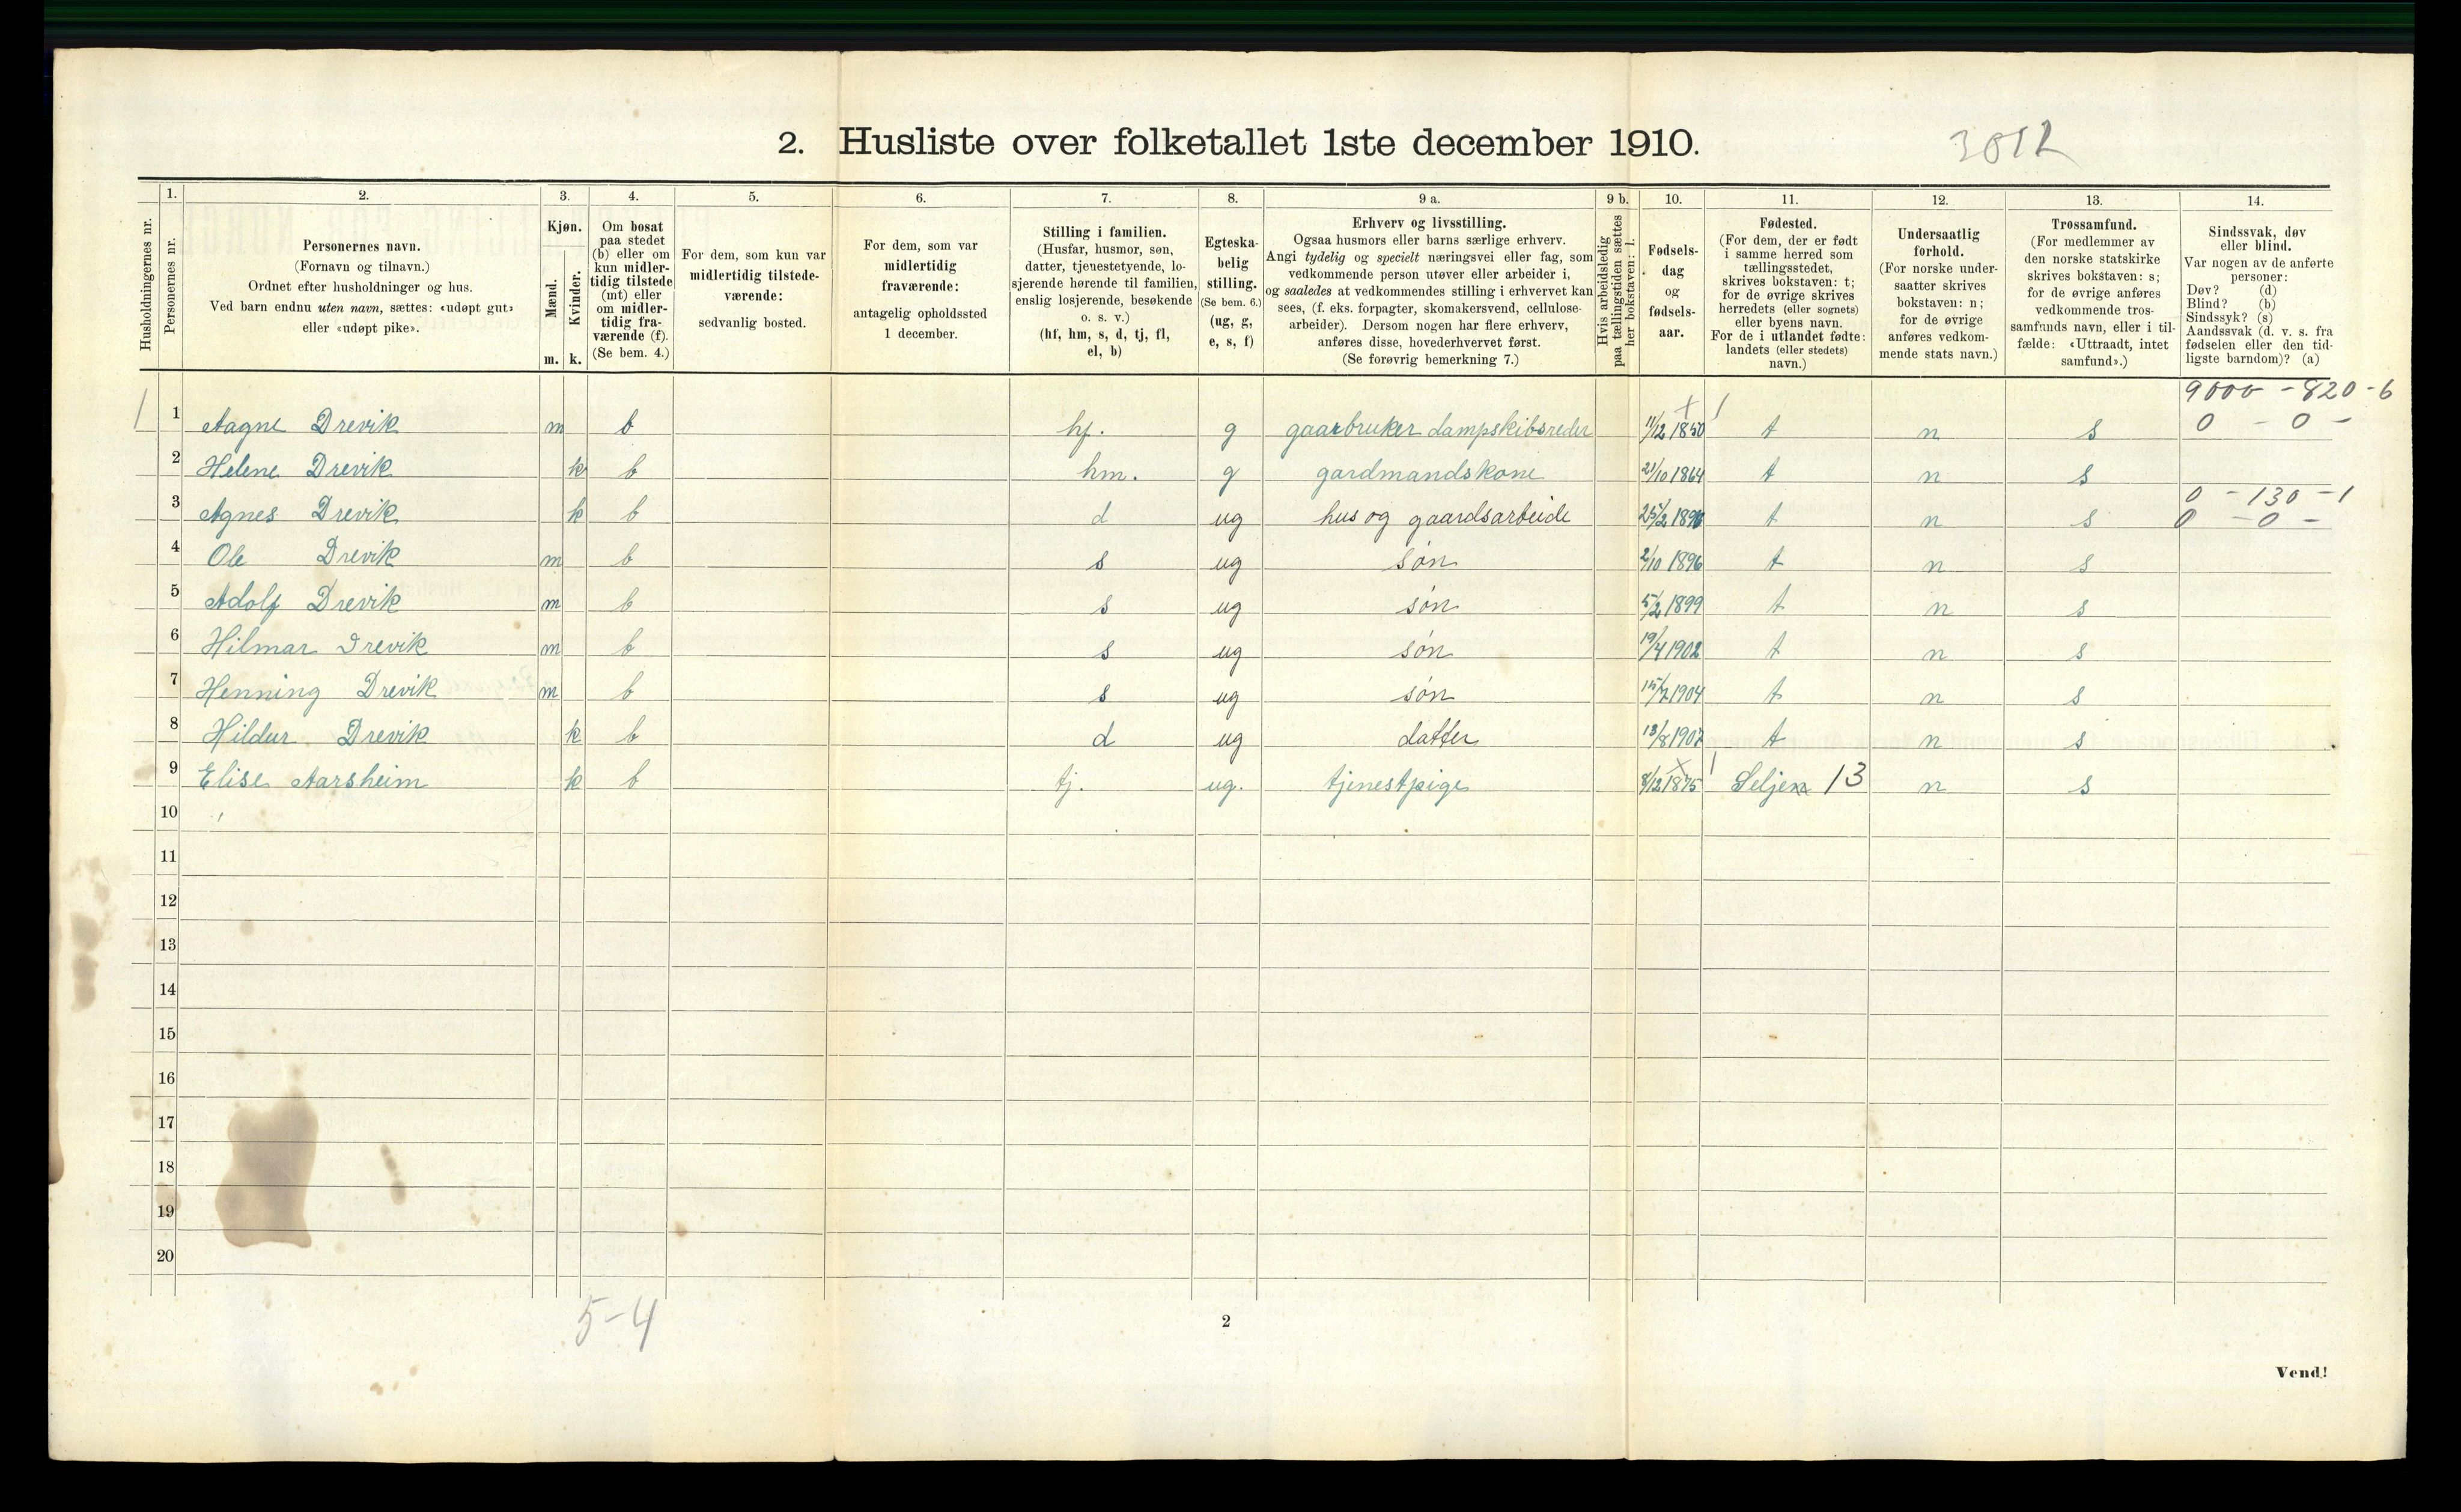 2. Husliste over folketallet 1ste december 1910.
3012
Husholdningernes nr.
1.
Personernes nr.
2.
Personernes navn.
(Fornavn og tilnavn.)
Ordnet efter husholdninger og hus.
Ved barn endnu uten navn, sættes: «udøpt gut»
eller «udøpt pike».
3.
Kjøn.
Mænd.
Kvinder.
m. k.
4.
Om bosat
paa stedet
(b) eller om
kun midler-
tidig tilstede
(mt) eller
om midler-
tidig fra-
værende (f).
(Se bem. 4.)
5.
For dem, som kun var
midlertidig tilstede-
værende:
sedvanlig bosted.
6.
For dem, som var
midlertidig
fraværende:
antagelig opholdssted
1 december.
7.
Stilling i familien.
(Husfar, husmor, søn,
datter, tjenestetyende, lo-
sjerende hørende til familien,
enslig losjerende, besøkende
o. s. v.)
(hf, hm, s, d, tj, fl,
el, b)
8.
Egteska-
belig
stilling.
(Se bem. 6.)
(ug, g,
e, s, f)
9 a.
Erhverv og livsstilling.
Ogsaa husmors eller barns særlige erhverv.
Angi tydelig og specielt næringsvei eller fag, som
vedkommende person utøver eller arbeider i,
og saaledes at vedkommendes stilling i erhvervet kan
sees, (f. eks. forpagter, skomakersvend, cellulose-
arbeider). Dersom nogen har flere erhverv,
anføres disse, hovederhvervet først.
(Se forøvrig bemerkning 7.)
9 b.
Hvis arbeidsledig
paa tællingstiden sættes
her bokstaven: l.
10.
Fødsels-
dag
og
fødsels-
aar.
11.
Fødested.
(For dem, der er født
i samme herred som
tællingsstedet,
skrives bokstaven: t;
for de øvrige skrives
herredets (eller sognets)
eller byens navn.
For de i utlandet fødte:
landets (eller stedets)
navn.)
12.
Undersaatlig
forhold.
(For norske under-
saatter skrives
bokstaven: n;
for de øvrige
anføres vedkom-
mende stats navn.)
13.
Trossamfund.
(For medlemmer av
den norske statskirke
skrives bokstaven: s;
for de øvrige anføres
vedkommende tros-
samfunds navn, eller i til-
fælde: «Uttraadt, intet
samfund».)
14.
Sindssvak, døv
eller blind.
Var nogen av de anførte
personer:
Døv? (d)
Blind? (b)
Sindssyk? (s)
Aandssvak (d. v. s. fra
fødselen eller den tid-
ligste barndom)? (a)
9000 - 820 - 6
1 1 Aagne Drevik m b hf. g gaarbruker dampskibsreder 11/12 1850 t n s 0 - 0 -
2 Helene Drevik k b hm. g gardmandskone 21/10 1864 t n s
0 - 130 - 1
3 Agnes Drevik k b d ug hus og gaardsarbeide t n s 0 - 0 -
4 Ole Drevik m b s ug søn 2/10 1896 t n s
5 Adolf Drevik m b s ug søn 5/2 1899 t n s
6 Hilmar Drevik m b s ug søn 19/4 1902 t n s
7 Henning Drevik m b s ug søn 15/7 1904 t n s
8 Hildur Drevik k b d ug datter 13/8 1907 t n s
9 Elise Aarsheim k b tj. ug. tjenestpige 8/12 1875 Selje 13 n s
10
11
12
13
14
15
16
17
18
19
20
5-4
2
Vend!